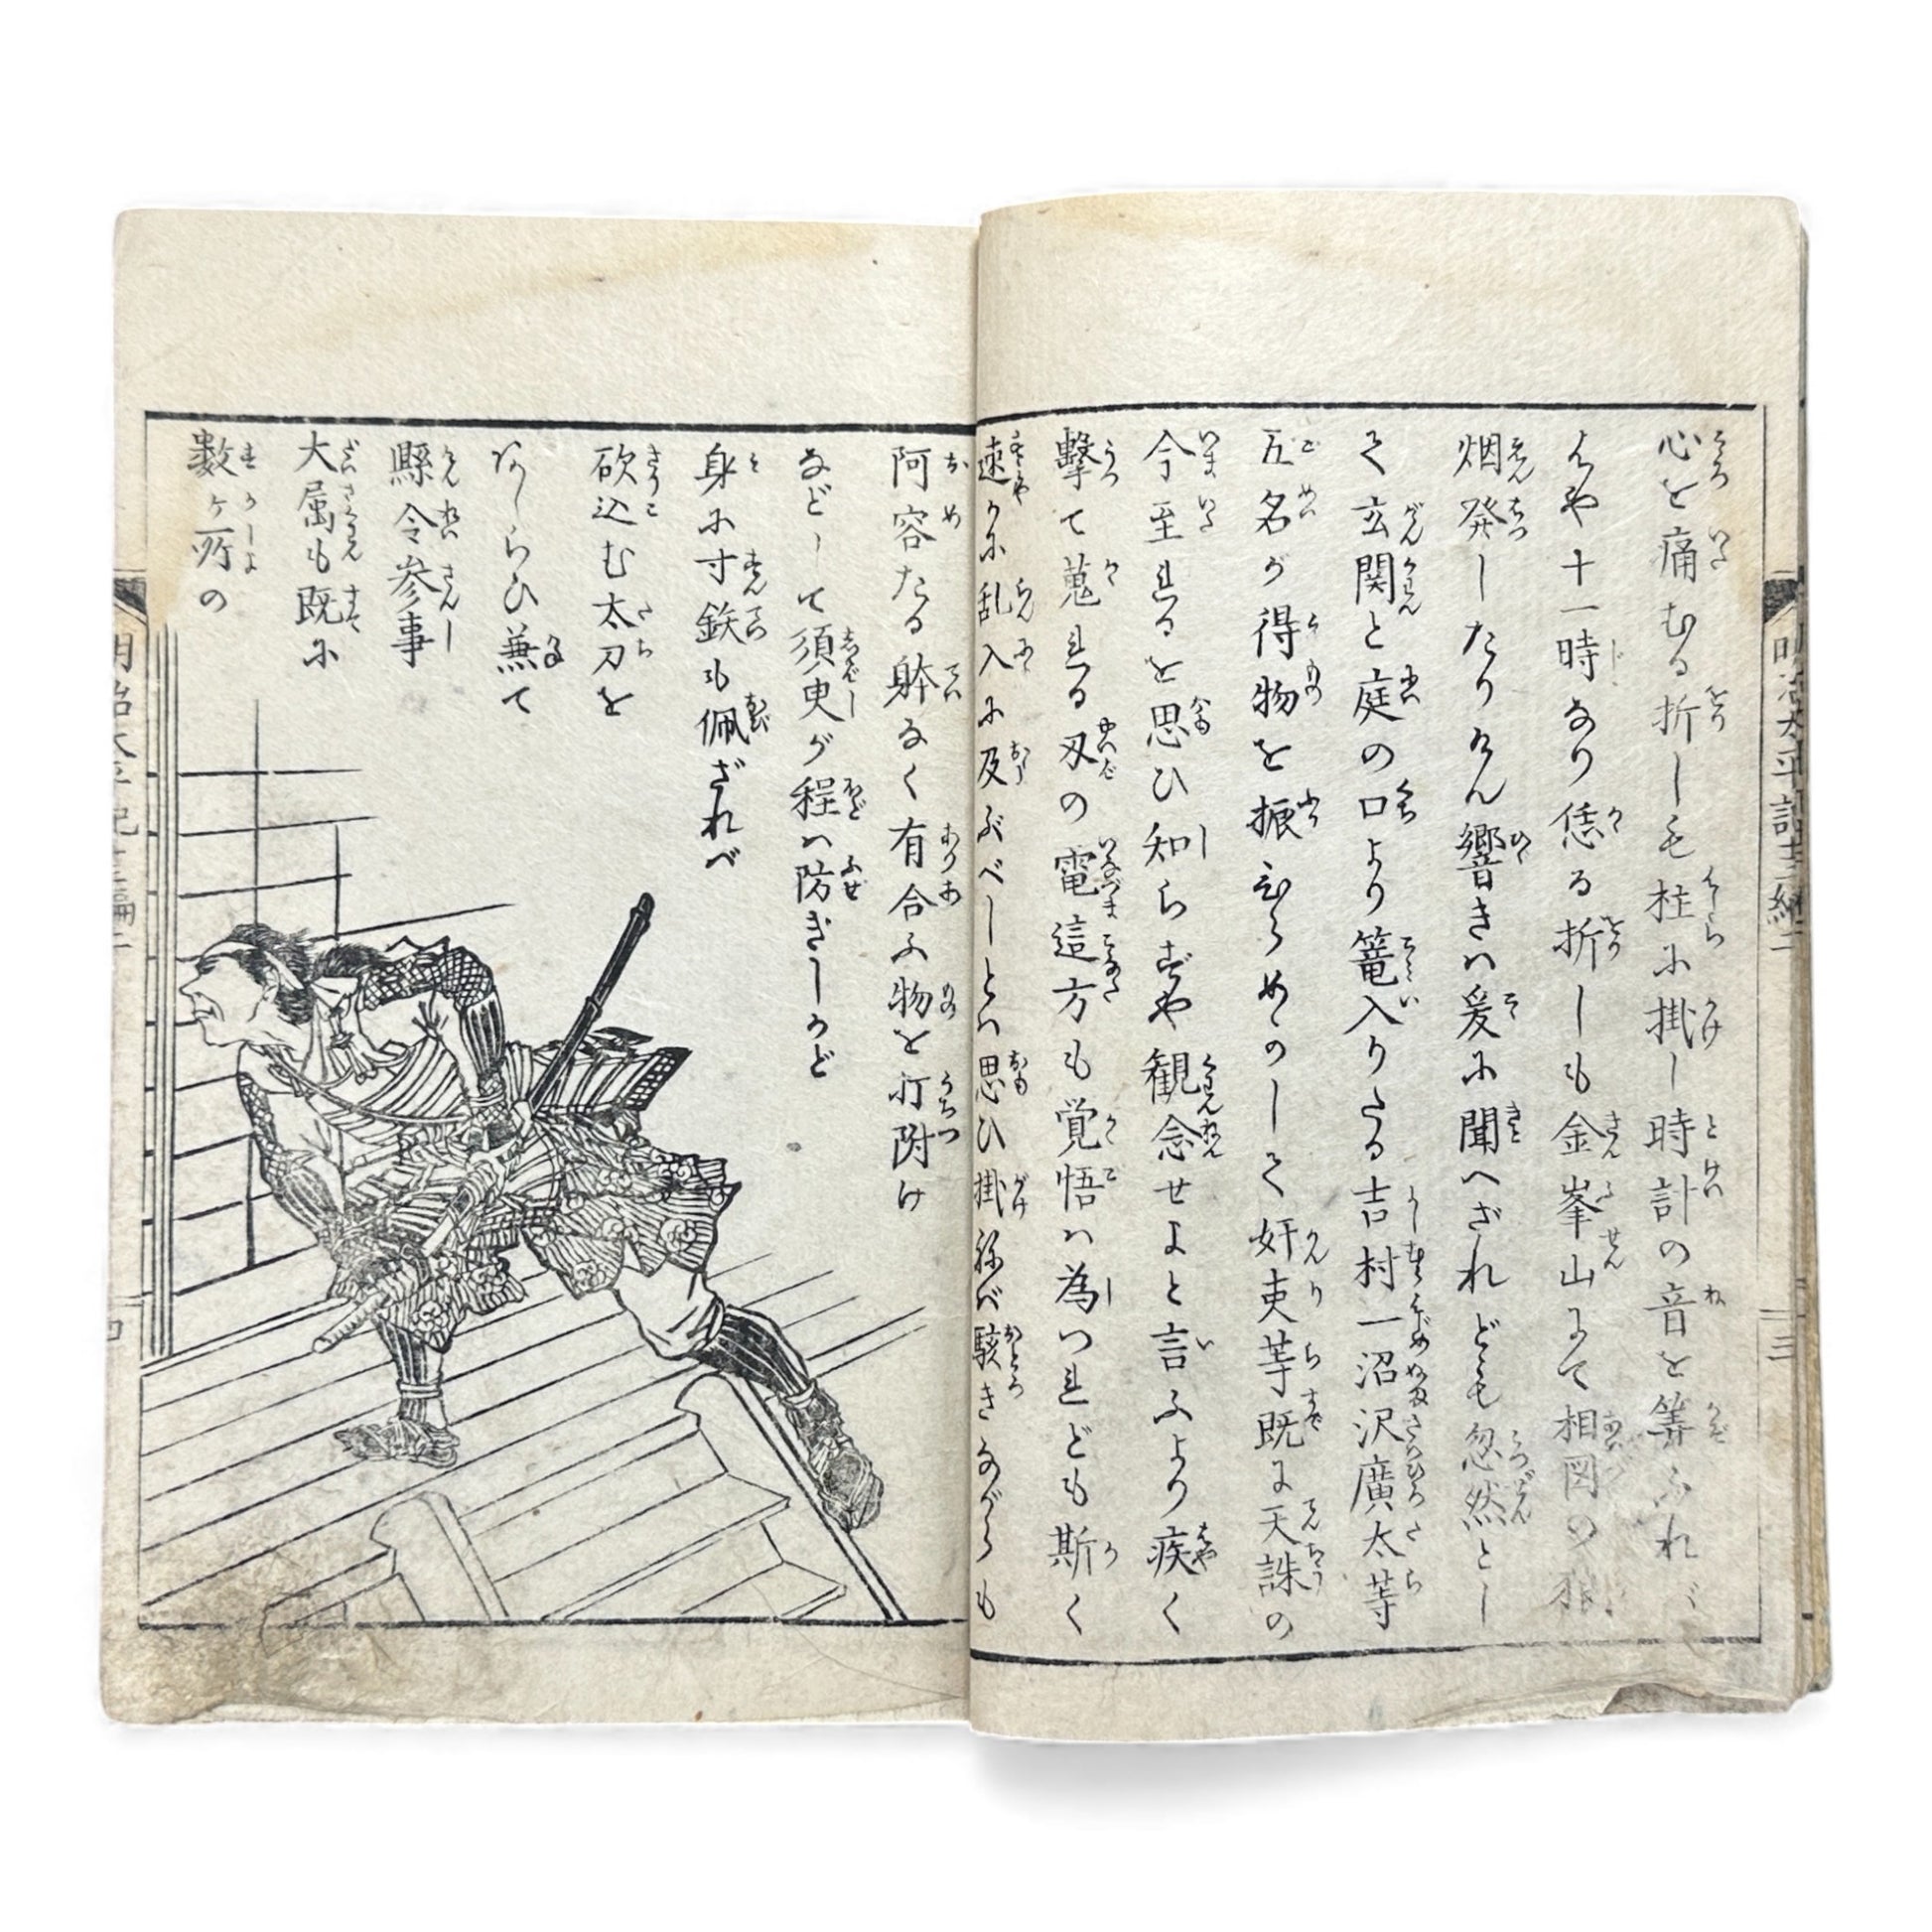 心を痛むる折しも柱に掛し時計の音を算ふれば
はや十一時なり恁る折しも金峯山にて相図の狼
烟発したりけん響きハ爰に聞へざれども忽然とし
て玄関と庭の口より篭入りたる吉村一沼沢廣太等
五名が得物を振ひらめかして奸吏等既に天誅の
今至れるを思ひ知らずや観念せよと言ふより疾く
撃て蒐れる刄の電這方も覚悟ハ為つれども斯く
速かに乱入に及ぶべしとハ思ひ掛ねバ駭きながらも
阿容たる躰なく有合ふ物を打附け
などして須臾が程ハ防ぎしかど
身に寸鉄も佩ざれバ
砍込む太刀を
あしらひ兼て
縣令参事
大属も既に
数ヶ所の
明治太平記十二編二
三
明治太平記十二編二
四